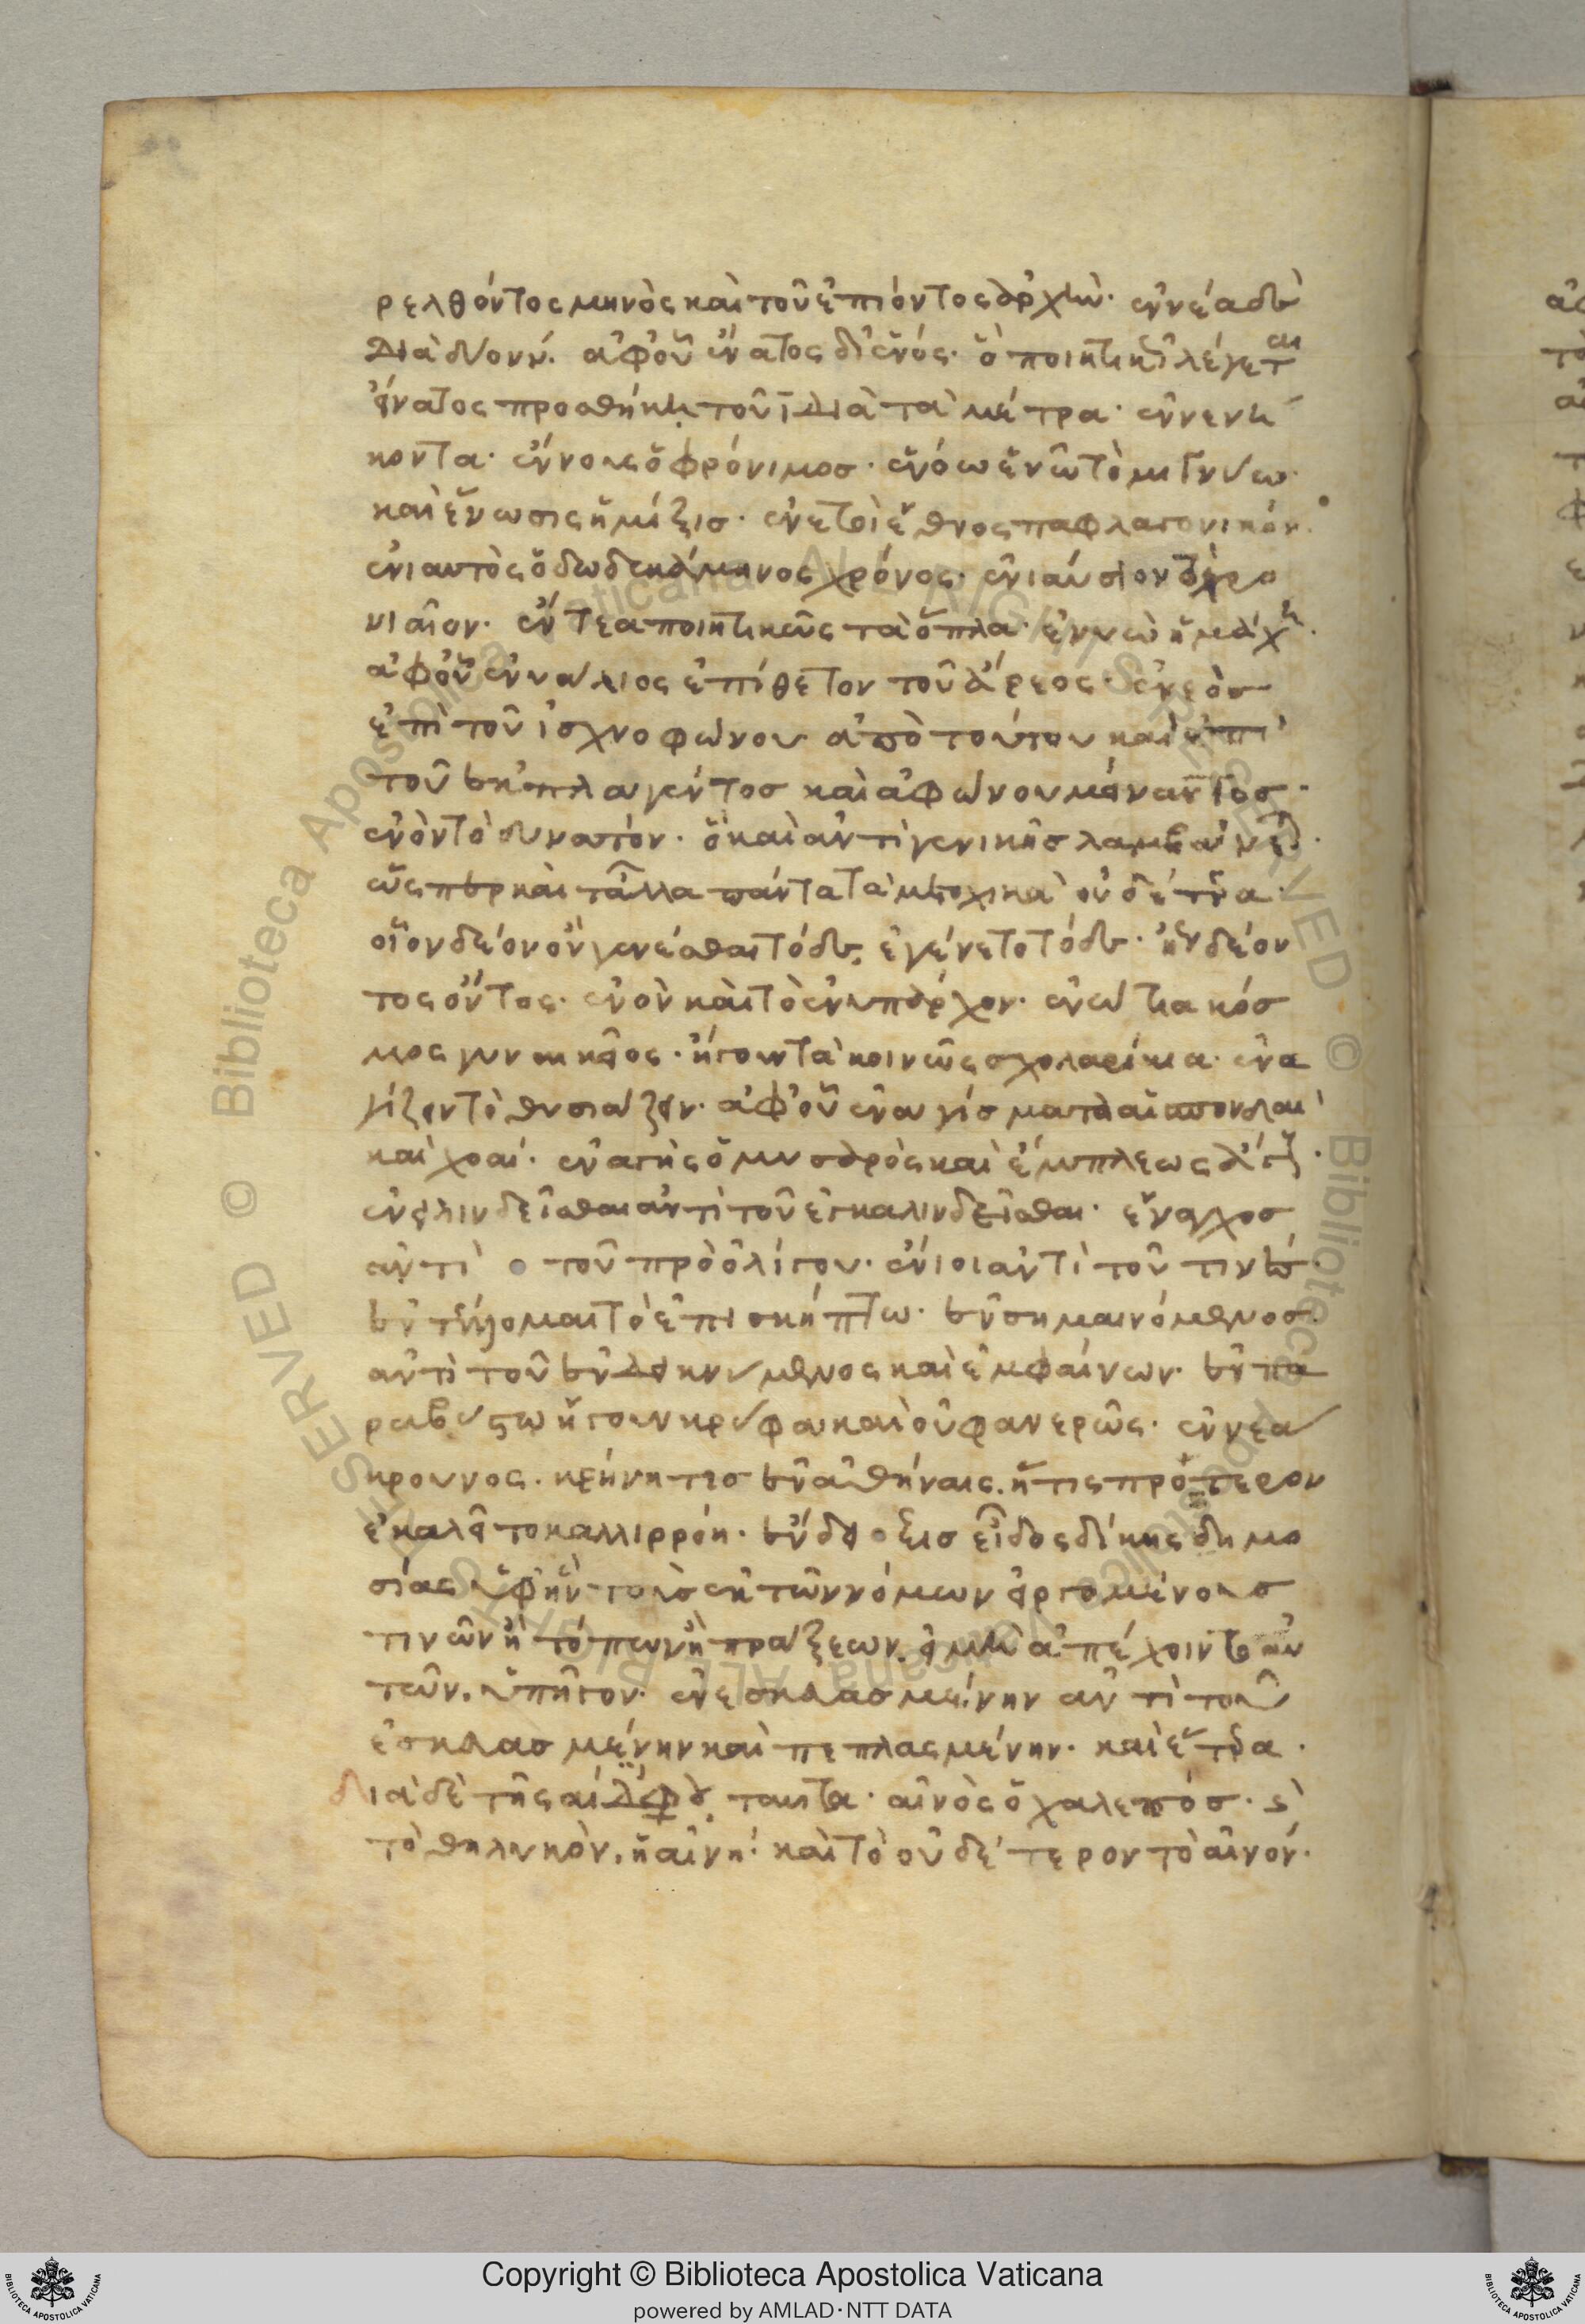 ρελθόντος μηνὸς καὶ τοῦ ἐπιόντος ἀρχήν· ἐννέα δὲ
διὰ δύο νν. ἀφ' οὗ ἔνατος δι' ἑνός· ὃ ποιητικῶς λέγεται
εἴνατος προσθήκῃ τοῦ ϊ διὰ τὰ μέτρα· ἐννενή
κοντα· ἔννους ὁ φρόνιμος· ἑνόω ἑνῶ τὸ μιγνύω·
καὶ ἕνωσις ἡ μίξις· ἐνετοὶ ἔθνος παφλαγονικόν·
ἐνιαυτὸς ὁ δωδεκάμηνος χρόνος· ἐνιαύσιον τὸ χρο
νιαῖον· ἔντεα ποιητικῶς τὰ ὅπλα· ἐνυὼ ἡ μάχη·
ἀφ' οὗ ἐνυάλιος ἐπίθετον τοῦ ἄρεος· ἐνεὸς
ἐπὶ τοῦ ἰσχνοφώνου ἀπὸ τούτου καὶ ἐπὶ
τοῦ ἐκπλαγέντος καὶ ἀφώνου μείναντος·
ἐνὸν τὸ δυνατόν· ὃ καὶ ἀντὶ γενικῆς λαμβάνεται·
ὥσπερ καὶ τἄλλα πάντα τὰ μετοχικὰ οὐδέτερα·
οἷον δέον οὖν γενέσθαι τόδε, ἐγένετο τόδε· ἤγουν δέον
τος ὄντος· ἐνὸν καὶ τὸ ἐνυπάρχον· ἐνώτια κόσ
μος γυναικεῖος· ἤγουν τὰ κοινῶς σχολαρίκια· ἐνα
γίζειν τὸ θυσιάζειν· ἀφ' οὗ ἐναγίσματα αἱ σπονδαὶ
καὶ χοαί· ἐναγὴς ὁ μυσαρὸς καὶ ἔμπλεως ἄγους·
ἐναλινδεῖσθαι ἀντὶ τοῦ ἐγκαλινδεῖσθαι· ἔναγχος
ἀντὶ τοῦ πρὸ ὀλίγου· ἔνιοι ἀντὶ τοῦ τινές·
ἐντέλλομαι τὸ ἐπισκήπτω· ἐνσημαινόμενος·
ἀντὶ τοῦ ἐνδεικνύμενος καὶ ἐμφαίνων· ἐν πα
ραβύστω ἤγουν κρύφα καὶ οὐ φανερῶς· ἐννεά
κρουνος· κρήνη τις ἐν ἀθήναις, ἥτις πρότερον
ἐκαλεῖτο καλλιρρόη· ἔνδειξις εἶδος δίκης δημο
σίας ὑφ' ἣν τοὺς ἐκ τῶν νόμων εἰργομένους
τινῶν ἢ τόπων ἢ πράξεων, εἰ μὴ ἀπέχοιντο αὐ
τῶν, ὑπῆγον· ἐνεσκλασμένην ἀντὶ τοῦ
ἐσκλασμένην καὶ πεπλασμένην· καὶ ἕτερα·
διὰ δὲ τῆς αι διφθόγγου ταῦτα· αἰνὸς ὁ χαλεπός· καὶ
τὸ θηλυκὸν, ἡ αἰνή· καὶ τὸ οὐδέτερον τὸ αἰνόν·
Copyright © Biblioteca Apostolica Vaticana
powered by AMLAD·NTT DATA